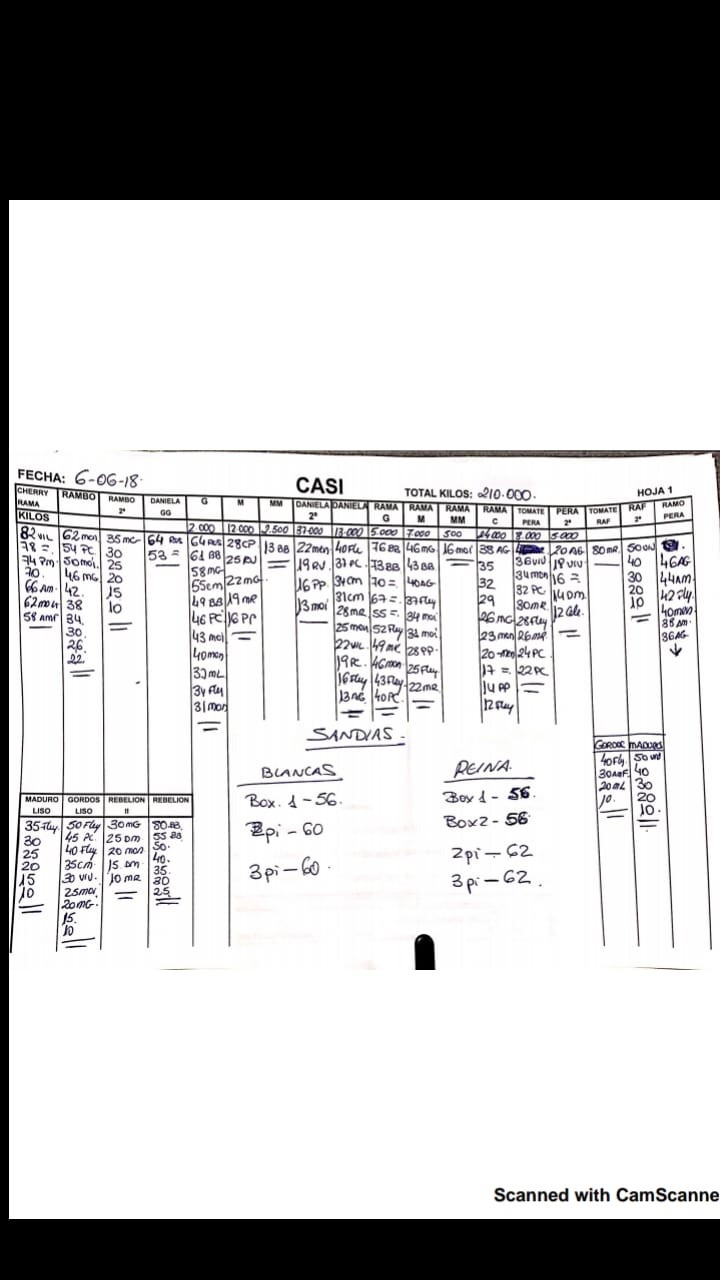 FECHA: 6-06-18.
CASI
TOTAL KILOS: 210.000.
HOJA 1
CHERRY RAMA RAMBO RAMBO 2ª DANIELA GG G M MM DANIELA 2ª DANIELA RAMA G RAMA M RAMA MM RAMA C TOMATE PERA PERA 2ª TOMATE RAF RAF 2ª RAMO PERA
KILOS 2.000 12.000 2.500 37.000 13.000 5.000 7.000 500 24.000 8.000 5.000
62 mon 35 mG 64 28 CP 13 BB 22 mon 76 BB 46 mG 16 moi 38 AG 20 AG 80 mR.
78 =. 54 PC. 30 53 = 61 BB 25 RV 19 RV 37 PC. 73 BB 43 BB 35 36 viv 19 viv 40 46 AG
50 moi. 25 58 mG 22 mG 16 PP 34 cm 70 = 40 AG 32 34 mon 16 = 30 44 AM
70. 46 mG 20 55 cm 19 mR 13 moi 31 cm 67 =. 37 Fly 29 32 PC 14 DM 20 42 Fly
66 Am. 42. 15 49 BB 16 PP 28 mR 55 =. 34 moi 26 mG 30 mR 10 40 mon
38 10 46 PC 25 mon 52 Fly 31 moi 23 mon 28 Fly 38 Am.
34. 43 moi 49 mR 28 PP. 20-mon 26 mR 36 AG
30. 40 mon 19 PC. 46 mon 25 Fly 17 =. 24 PC
26. 16 Fly 43 Fly 22 mR 14 PP 22 PC
22. 34 Fly 13 AG 40 PC. 12 Fly
31 mon
SANDIAS.
BLANCAS
REINA.
Box. 1-56.
Box 1 - 56.
2pi - 60
Box 2 - 56
3pi - 60.
2pi - 62
3 pi - 62.
GORDOS MADUROS
40 Fly. 50
40
20 mL 30
10. 20
10.
MADURO LISO GORDOS LISO REBELION II REBELION
35 Fly. 50 Fly 30 mG 80 BB.
30 45 PC. 25 DM 55 BB
25 40 Fly 20 mon 50.
20 35 cm. 15. DM 40.
15 30 viv. 10 mR 35.
10 25 moi. 30
20 mG. 25
15.
10
Scanned with CamScanne